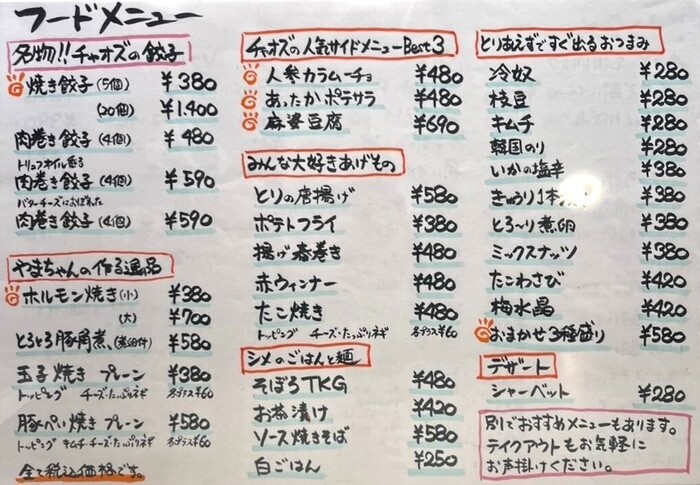 フードメニュー
名物!!チャオズの餃子
焼き餃子(5個) ¥380
(20個) ¥1.400
肉巻き餃子(4個) ¥480
トリュフオイル香る
肉巻き餃子(4個) ¥590
バターチーズにおぼれた
肉巻き餃子(4個) ¥590
やまちゃんの作る逸品
ホルモン焼き(小) ¥380
(大) ¥700
とろとろ豚角煮(煮卵付) ¥580
玉子焼き プレーン ¥380
トッピング チーズ・たっぷりネギ 各プラス¥60
豚ぺい焼き プレーン ¥580
トッピング キムチ・チーズ・たっぷりネギ 各プラス¥60
全て税込価格です。
チャオズの人気サイドメニューBest3
人参カラムーチョ ¥480
あったかポテサラ ¥480
麻婆豆腐 ¥690
みんな大好きあげもの
とりの唐揚げ ¥580
ポテトフライ ¥380
揚げ春巻き ¥480
赤ウィンナー ¥480
たこ焼き ¥480
トッピング チーズ・たっぷりネギ 各プラス¥60
シメのごはんと麺
そぼろTKG ¥480
お茶漬け ¥420
ソース焼きそば ¥580
白ごはん ¥250
とりあえずですぐ出るおつまみ
冷奴 ¥280
枝豆 ¥280
キムチ ¥280
韓国のり ¥280
いかの塩辛 ¥380
きゅうり1本 ¥380
とろ〜り煮卵 ¥380
ミックスナッツ ¥380
たこわさび ¥420
梅水晶 ¥420
おまかせ3種盛り ¥580
デザート
シャーベット ¥280
別でおすすめメニューもあります。
テイクアウトもお気軽に
お声掛けください。